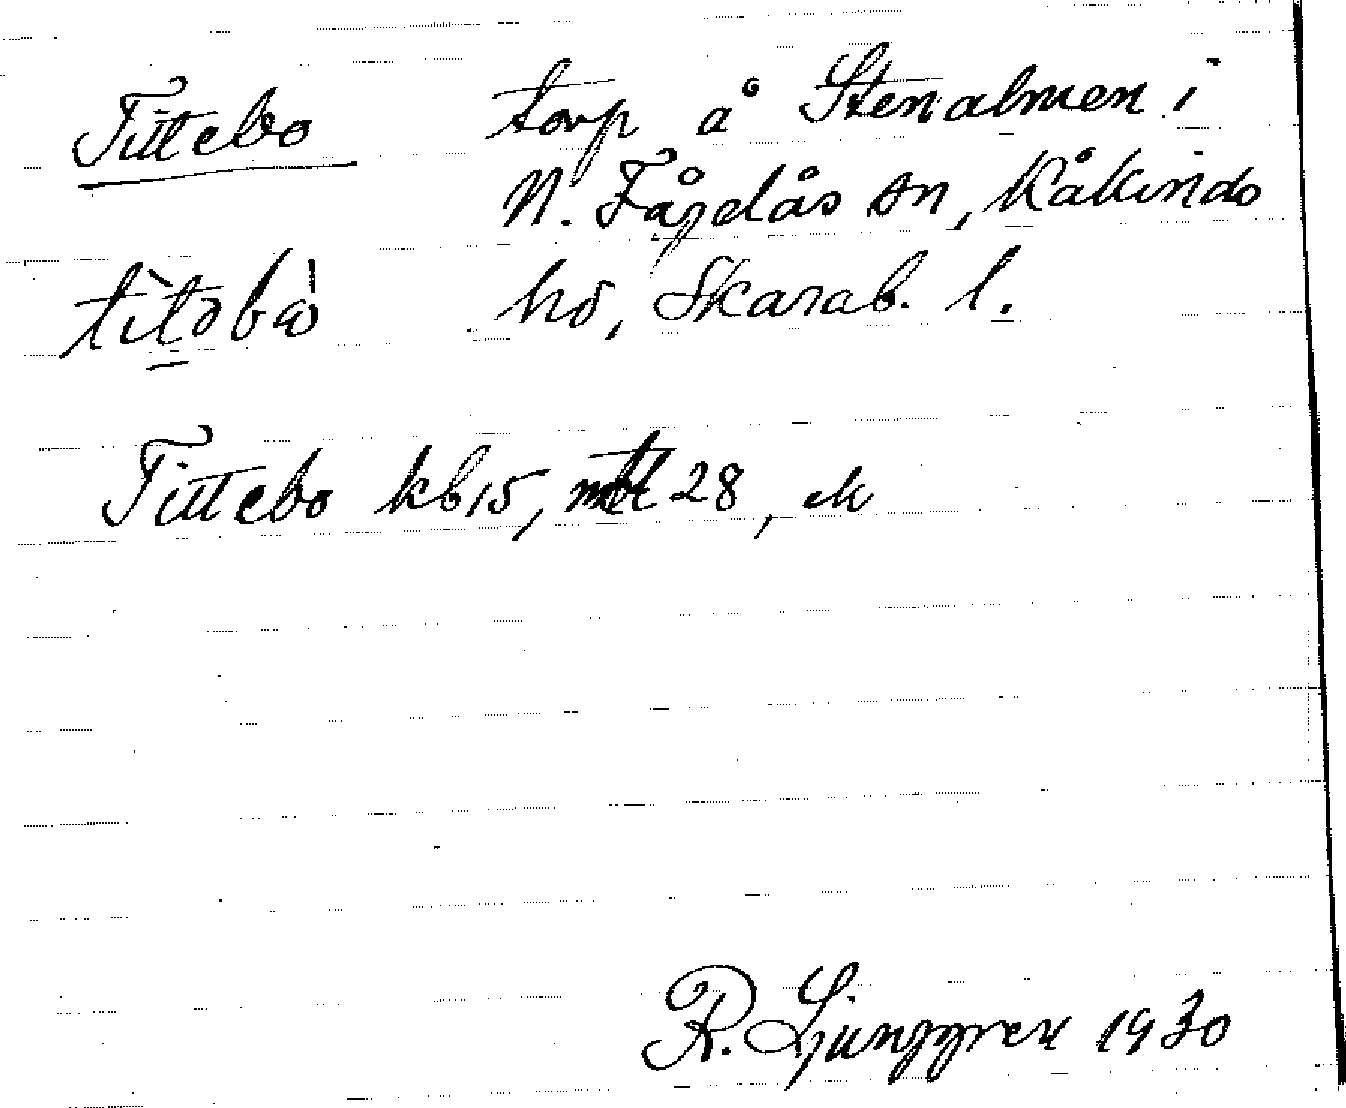 Tittebo torp å Stenalmen i
N. Fågelås sn, Kåkinds
hd, Skarab. l.
Tittebo kb 15, 28, ek
R. Ljunggren 1930